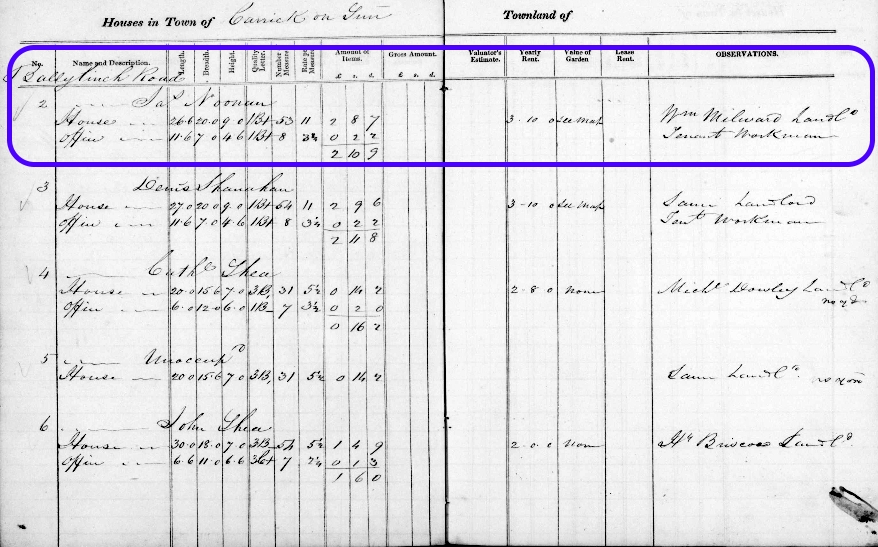 Houses in Town of Carrick on Suir
Townland of
No. Name and Description. Length. Breadth. Height. Quality Letter. Number Measure Rate per Measure Amount of Items. £ s. d. Gross Amount. £ s. d. Valuator's Estimate. Yearly Rent. Value of Garden Lease Rent. OBSERVATIONS.
Ballylinch Road
2 Jas Noonan
House 26.6 20.0 9.0 1B+ 53 11 2 8 7 3.10.0 see map Wm Milward Landld
Office 11.6 7.0 4.6 1B+ 8 3¼ 0 2 2 Tenant Workman
2 10 9
3 Denis Shanahan
House 27.0 20.0 9.0 1B+ 54 11 2 9 6 3.10.0 see map Same Landlord
Office 11.6 7.0 4.6 1B+ 8 3¼ 0 2 2 Tent Workman
2 11 8
4 Cathe Shea
House 20.0 15.6 7.0 3B 31 5½ 0 14 2 2.8.0 none Michl Dowley Landld
no yd
Office 6.0 12.0 6.0 1B- 7 3½ 0 2 0
0 16 2
5 Unoccupd
House 20.0 15.6 7.0 3B 31 5½ 0 14 2 Same Landld
6 John Shea
House 30.0 18.0 7.0 3B 54 5½ 1 4 9 2.0.0 none Hy Briscoe Landld
Office 6.6 11.0 6.6 7 2¼ 0 1 3
1 6 0